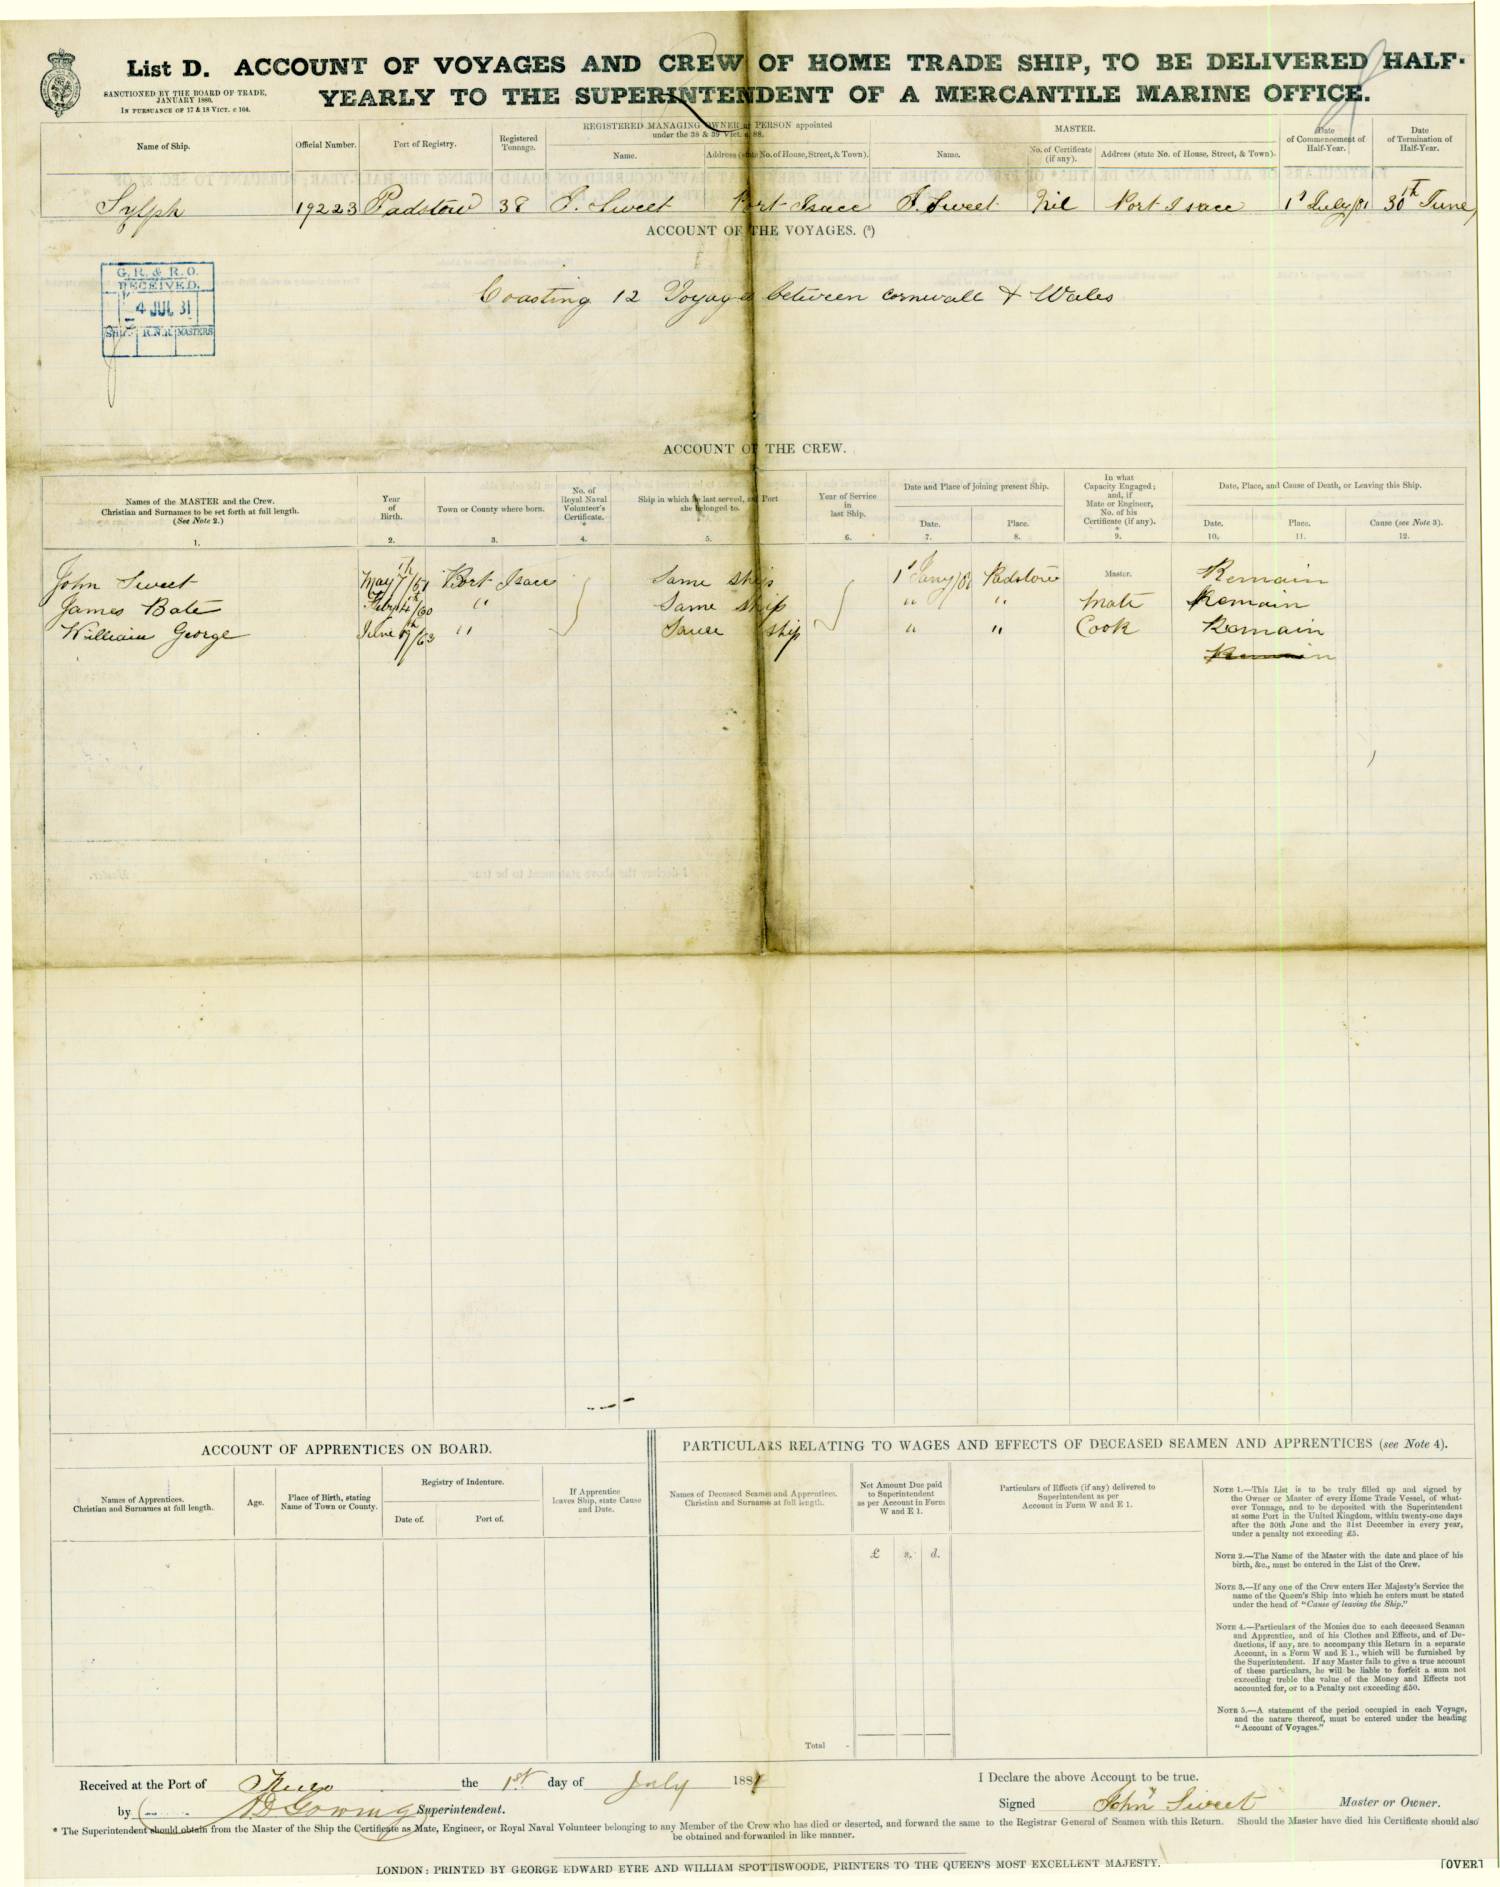 List D. ACCOUNT OF VOYAGES AND CREW OF HOME TRADE SHIP, TO BE DELIVERED HALF-
YEARLY TO THE SUPERINTENDENT OF A MERCANTILE MARINE OFFICE.
SANCTIONED BY THE BOARD OF TRADE,
JANUARY 1880.
IN PURSUANCE OF 17 & 18 VICT. c 104.
Name of Ship.
Official Number.
Port of Registry.
Registered
Tonnage.
REGISTERED MANAGING OWNER or PERSON appointed
under the 38 & 39 Vict. c. 88.
Name.
Address (state No. of House, Street, & Town).
MASTER.
Name.
No. of Certificate
(if any).
Address (state No. of House, Street, & Town).
Date
of Commencement of
Half-Year.
Date
of Termination of
Half-Year.
Sylph 19223 Padstow 38 J. Sweet Port Isaac J. Sweet Nil Port Isaac 1st July/81 30th June
ACCOUNT OF THE VOYAGES. (5)
G. R. & R. O.
RECEIVED.
4 JUL 81
SHIP. R.N.R MASTERS
Coasting 12 Voyages between cornwall & Wales
ACCOUNT OF THE CREW.
Names of the MASTER and the Crew.
Christian and Surnames to be set forth at full length.
(See Note 2.)
1.
Year
of
Birth.
2.
Town or County where born.
3.
No. of
Royal Naval
Volunteer's
Certificate.
*
4.
Ship in which he last served, and Port
she belonged to.
5.
Year of Service
in
last Ship.
6.
Date and Place of joining present Ship.
Date.
7.
Place.
8.
In what
Capacity Engaged;
and, if
Mate or Engineer,
No. of his
Certificate (if any).
*
9.
Date, Place, and Cause of Death, or Leaving this Ship.
Date.
10.
Place.
11.
Cause (see Note 3).
12.
John Sweet May 7th/51 Port Isaac Same ship 1st Jany/81 Padstow Master. Remain
James Bate Feby 4th/60 " Same ship " " Mate Remain
William George June 19th/63 " Same ship " " Cook Remain
Remain
ACCOUNT OF APPRENTICES ON BOARD.
Names of Apprentices.
Christian and Surnames at full length.
Age.
Place of Birth, stating
Name of Town or County.
Registry of Indenture.
Date of.
Port of.
If Apprentice
leaves Ship, state Cause
and Date.
PARTICULARS RELATING TO WAGES AND EFFECTS OF DECEASED SEAMEN AND APPRENTICES (see Note 4).
Names of Deceased Seamen and Apprentices.
Christian and Surname at full length.
Net Amount Due paid
to Superintendent
as per Account in Form
W and E 1.
£ s. d.
Particulars of Effects (if any) delivered to
Superintendent as per
Account in Form W and E 1.
Total
NOTE 1.—This List is to be truly filled up and signed by
the Owner or Master of every Home Trade Vessel, of what-
ever Tonnage, and to be deposited with the Superintendent
at some Port in the United Kingdom, within twenty-one days
after the 30th June and the 31st December in every year,
under a penalty not exceeding £5.
NOTE 2.—The Name of the Master with the date and place of his
birth, &c., must be entered in the List of the Crew.
NOTE 3.—If any one of the Crew enters Her Majesty's Service the
name of the Queen's Ship into which he enters must be stated
under the head of "Cause of leaving the Ship."
NOTE 4.—Particulars of the Monies due to each deceased Seaman
and Apprentice, and of his Clothes and Effects, and of De-
ductions, if any, are to accompany this Return in a separate
Account, in a Form W and E 1., which will be furnished by
the Superintendent. If any Master fails to give a true account
of these particulars, he will be liable to forfeit a sum not
exceeding treble the value of the Money and Effects not
accounted for, or to a Penalty not exceeding £50.
NOTE 5.—A statement of the period occupied in each Voyage,
and the nature thereof, must be entered under the heading
"Account of Voyages."
Received at the Port of Truro the 1st day of July 1881
by Superintendent.
I Declare the above Account to be true.
Signed John Sweet Master or Owner.
* The Superintendent should obtain from the Master of the Ship the Certificate as Mate, Engineer, or Royal Naval Volunteer belonging to any Member of the Crew who has died or deserted, and forward the same to the Registrar General of Seamen with this Return. Should the Master have died his Certificate should also
be obtained and forwarded in like manner.
LONDON: PRINTED BY GEORGE EDWARD EYRE AND WILLIAM SPOTTISWOODE, PRINTERS TO THE QUEEN'S MOST EXCELLENT MAJESTY.
[OVER]